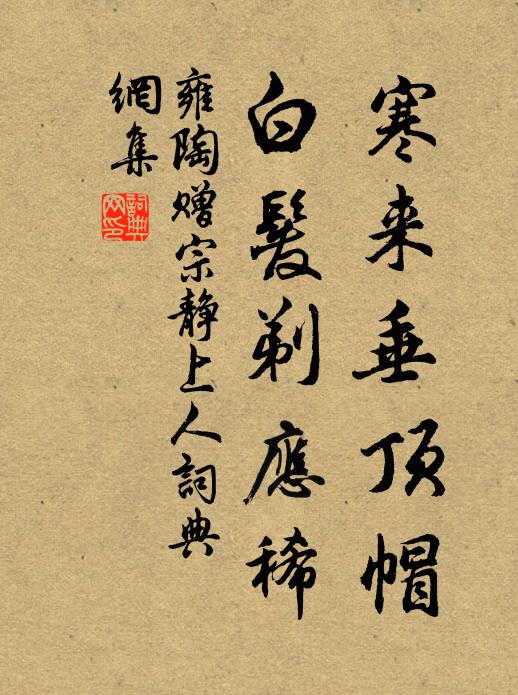 寒来垂顶帽
白髮剃應稀
雍陶赠宗静上人詞典
網集
詞典网印